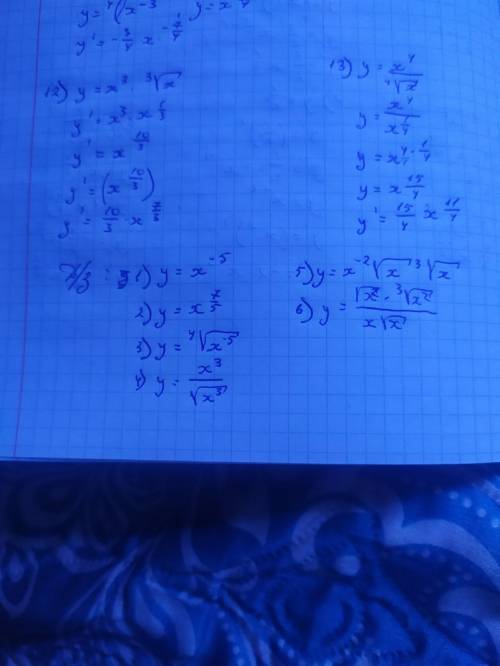 y = ⁴√x⁻³ y = x
y' = -3/4 x^(-7/4)
12) y = x³ · ³√x
y' = x³ · x^(1/3)
y' = x^(10/3)
y' = (x^(10/3))
y' = 10/3 · x^(7/3)
13) y = x⁴/⁴√x
y = x⁴/x^(1/4)
y = x
y = x^(15/4)
y' = 15/4 x^(11/4)
Д/з : 1) y = x⁻⁵
2) y = x^(7/5)
3) y = ⁴√x⁵
4) y = x³/√x³
5) y = x⁻² √x ³√x
6) y = √x · ³√x² / x√x